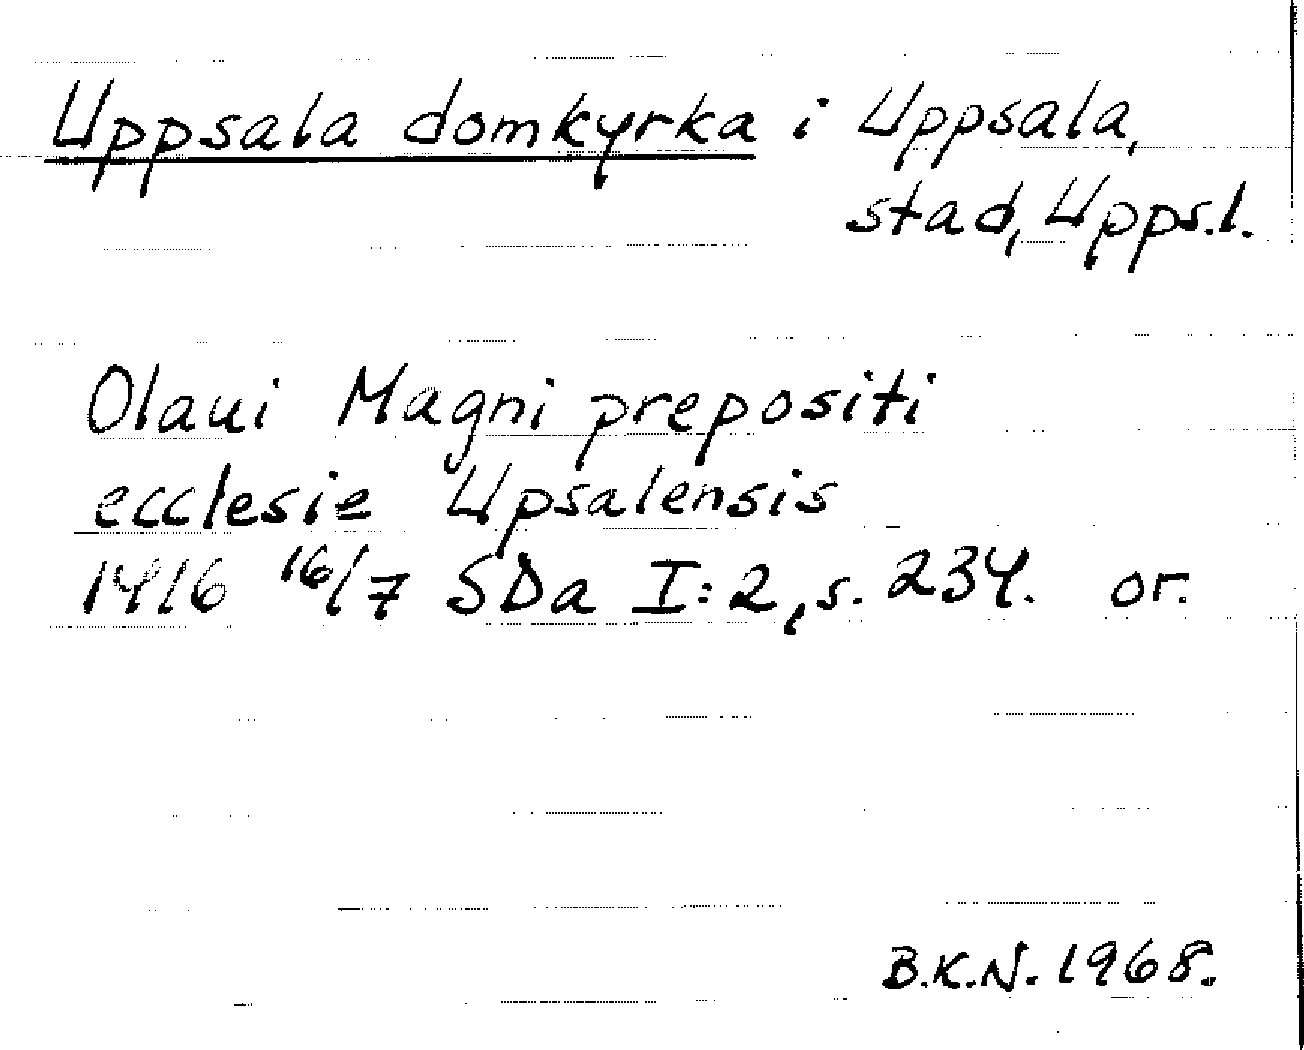 Uppsala domkyrka i Uppsala,
stad, Upps.l.
Olaui Magni prepositi
ecclesie Upsalensis
1416 16/7 SDa I:2, s. 234. or.
B.K.N. 1968.